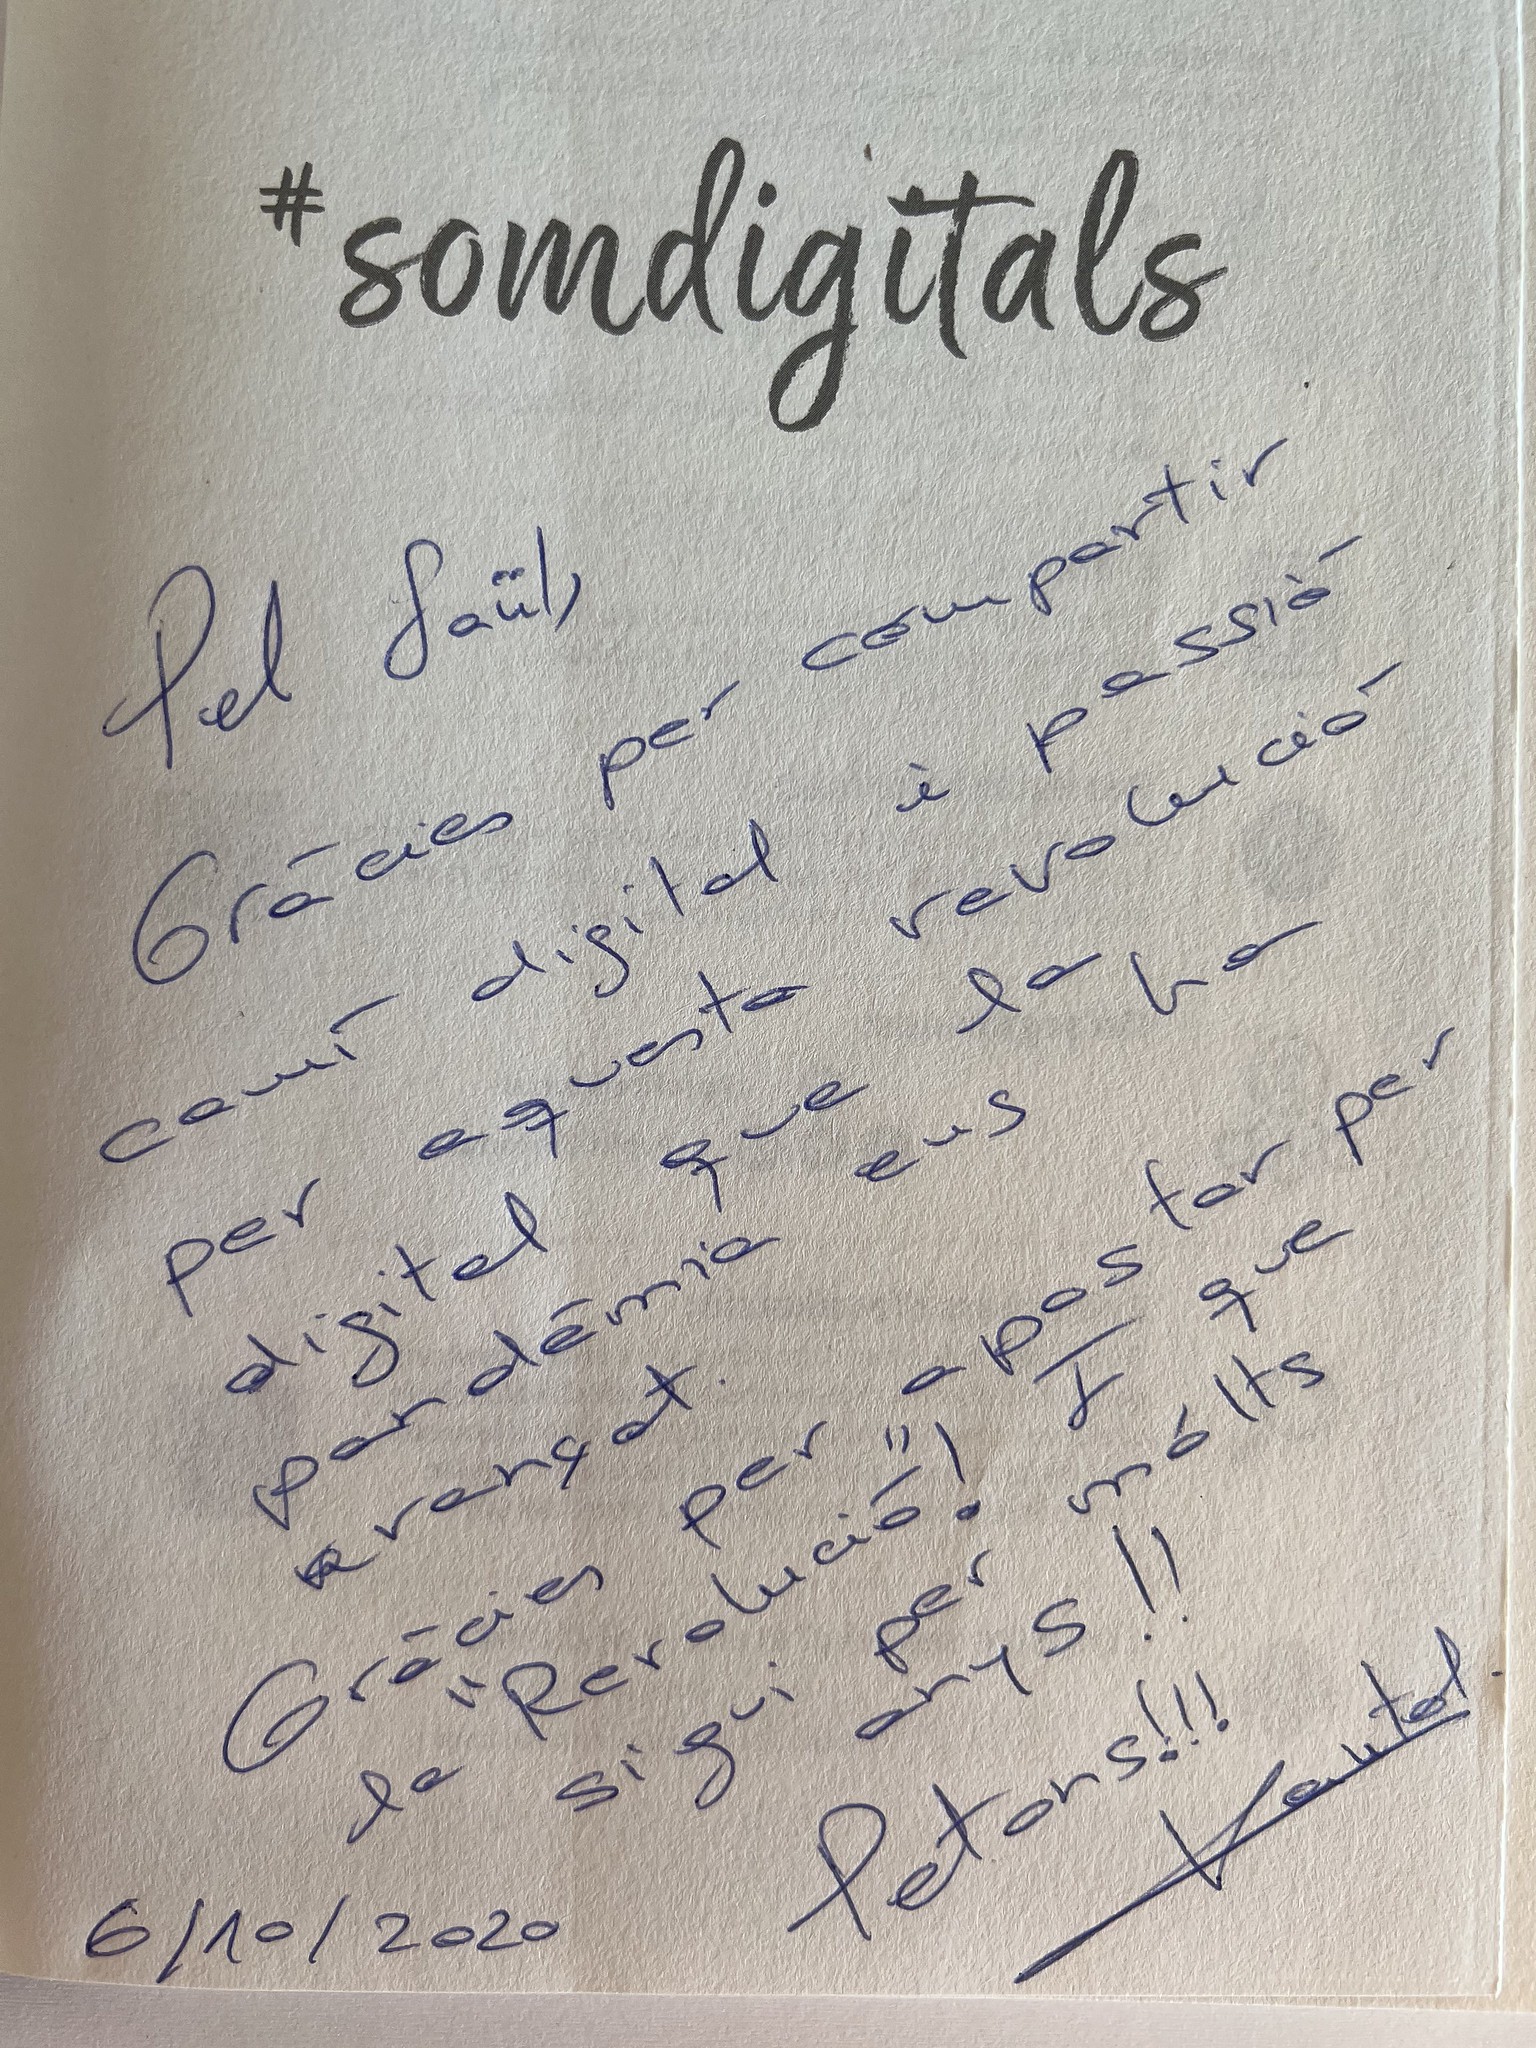 #somdigitals
Pel Saül,
Gràcies per compartir
camí digital i passió
per aquesta revolució
digital que la
pandèmia ens ha
avançat.
Gràcies per apostar per
la "Revolució"! I que
sigui per molts
anys!!
Petons!!!
6/10/2020